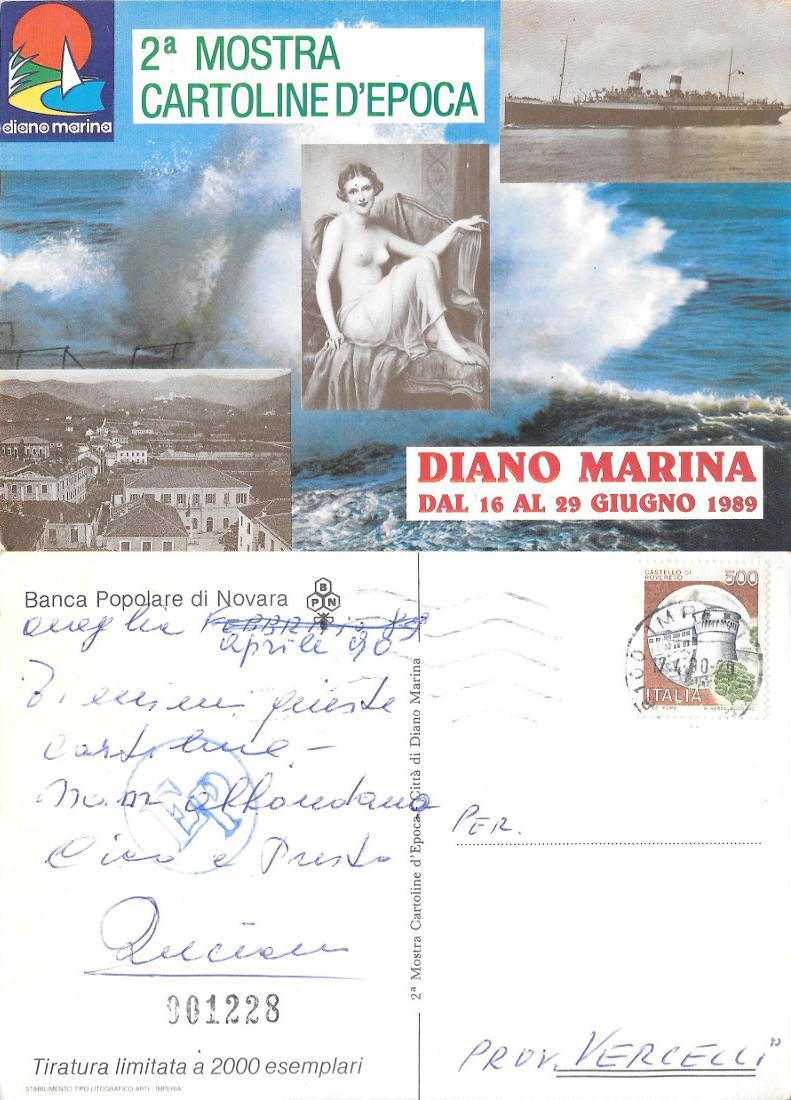 diano marina
2ª MOSTRA
CARTOLINE D'EPOCA
DIANO MARINA
DAL 16 AL 29 GIUGNO 1989
Banca Popolare di Novara
BPN
oneglia FEBBRAIO 89
aprile 90
queste
cartoline –
non abbondano
Ciao e Presto
EP
001228
Tiratura limitata a 2000 esemplari
STABILIMENTO TIPO-LITOGRAFICO ARTI - IMPERIA
2ª Mostra Cartoline d'Epoca Città di Diano Marina
CASTELLO DI
ROVERETO
500
ITALIA
PER.
PROV. VERCELLI